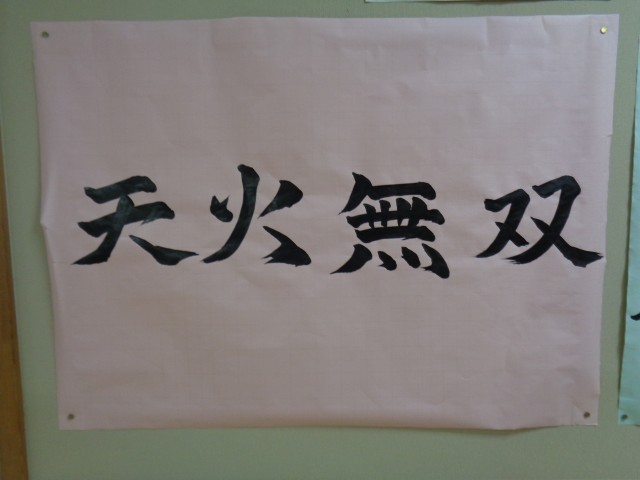 天火無双